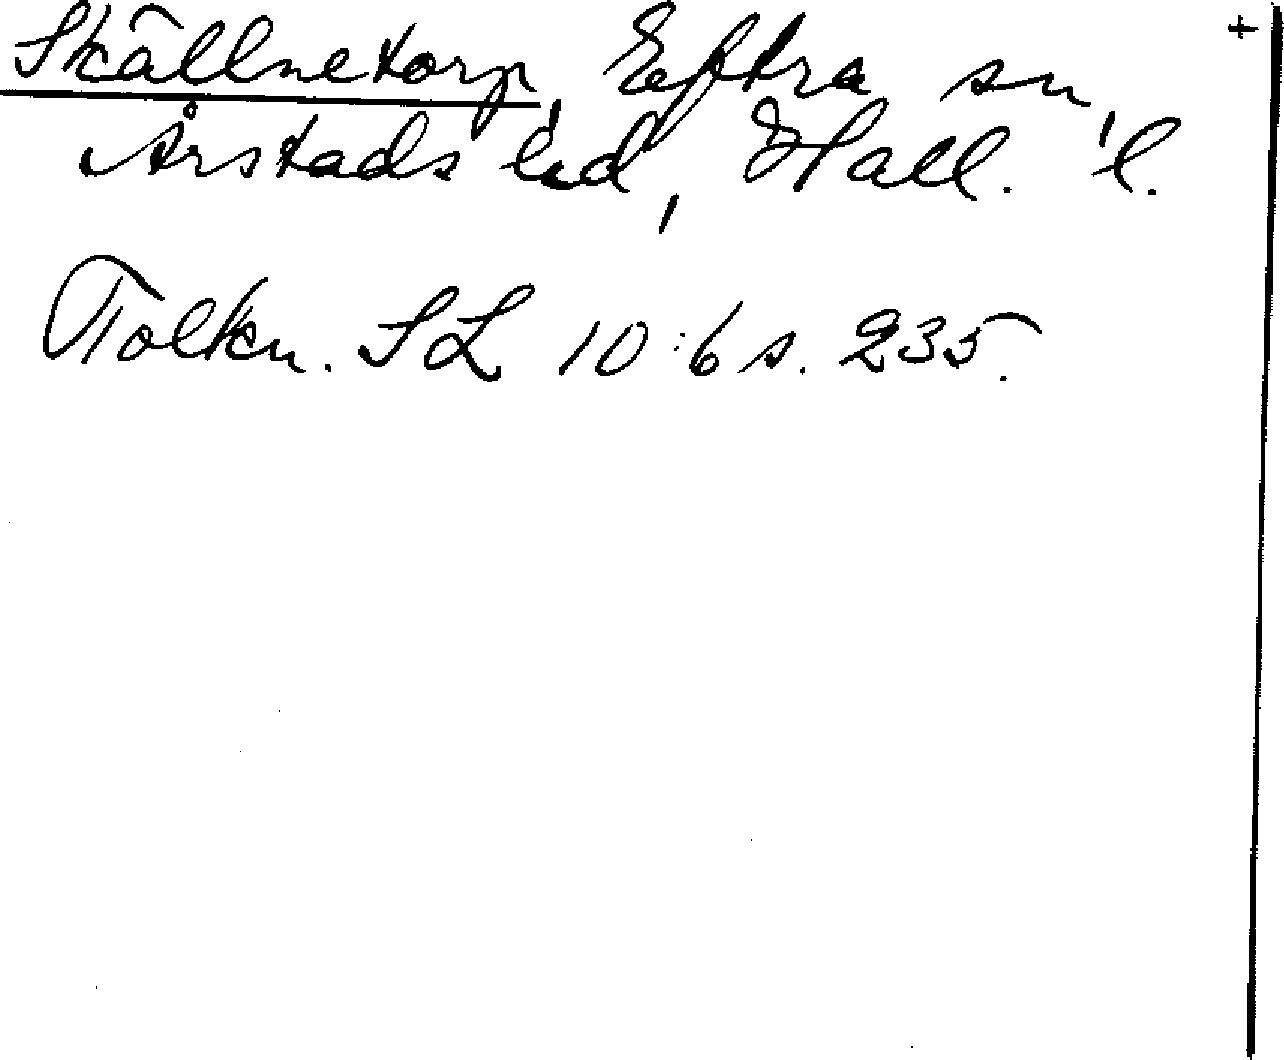 Skällnetorp, Eftra sn, +
Årstads hd, Hall. l.
Tolkn. SL 10:6 s. 235.